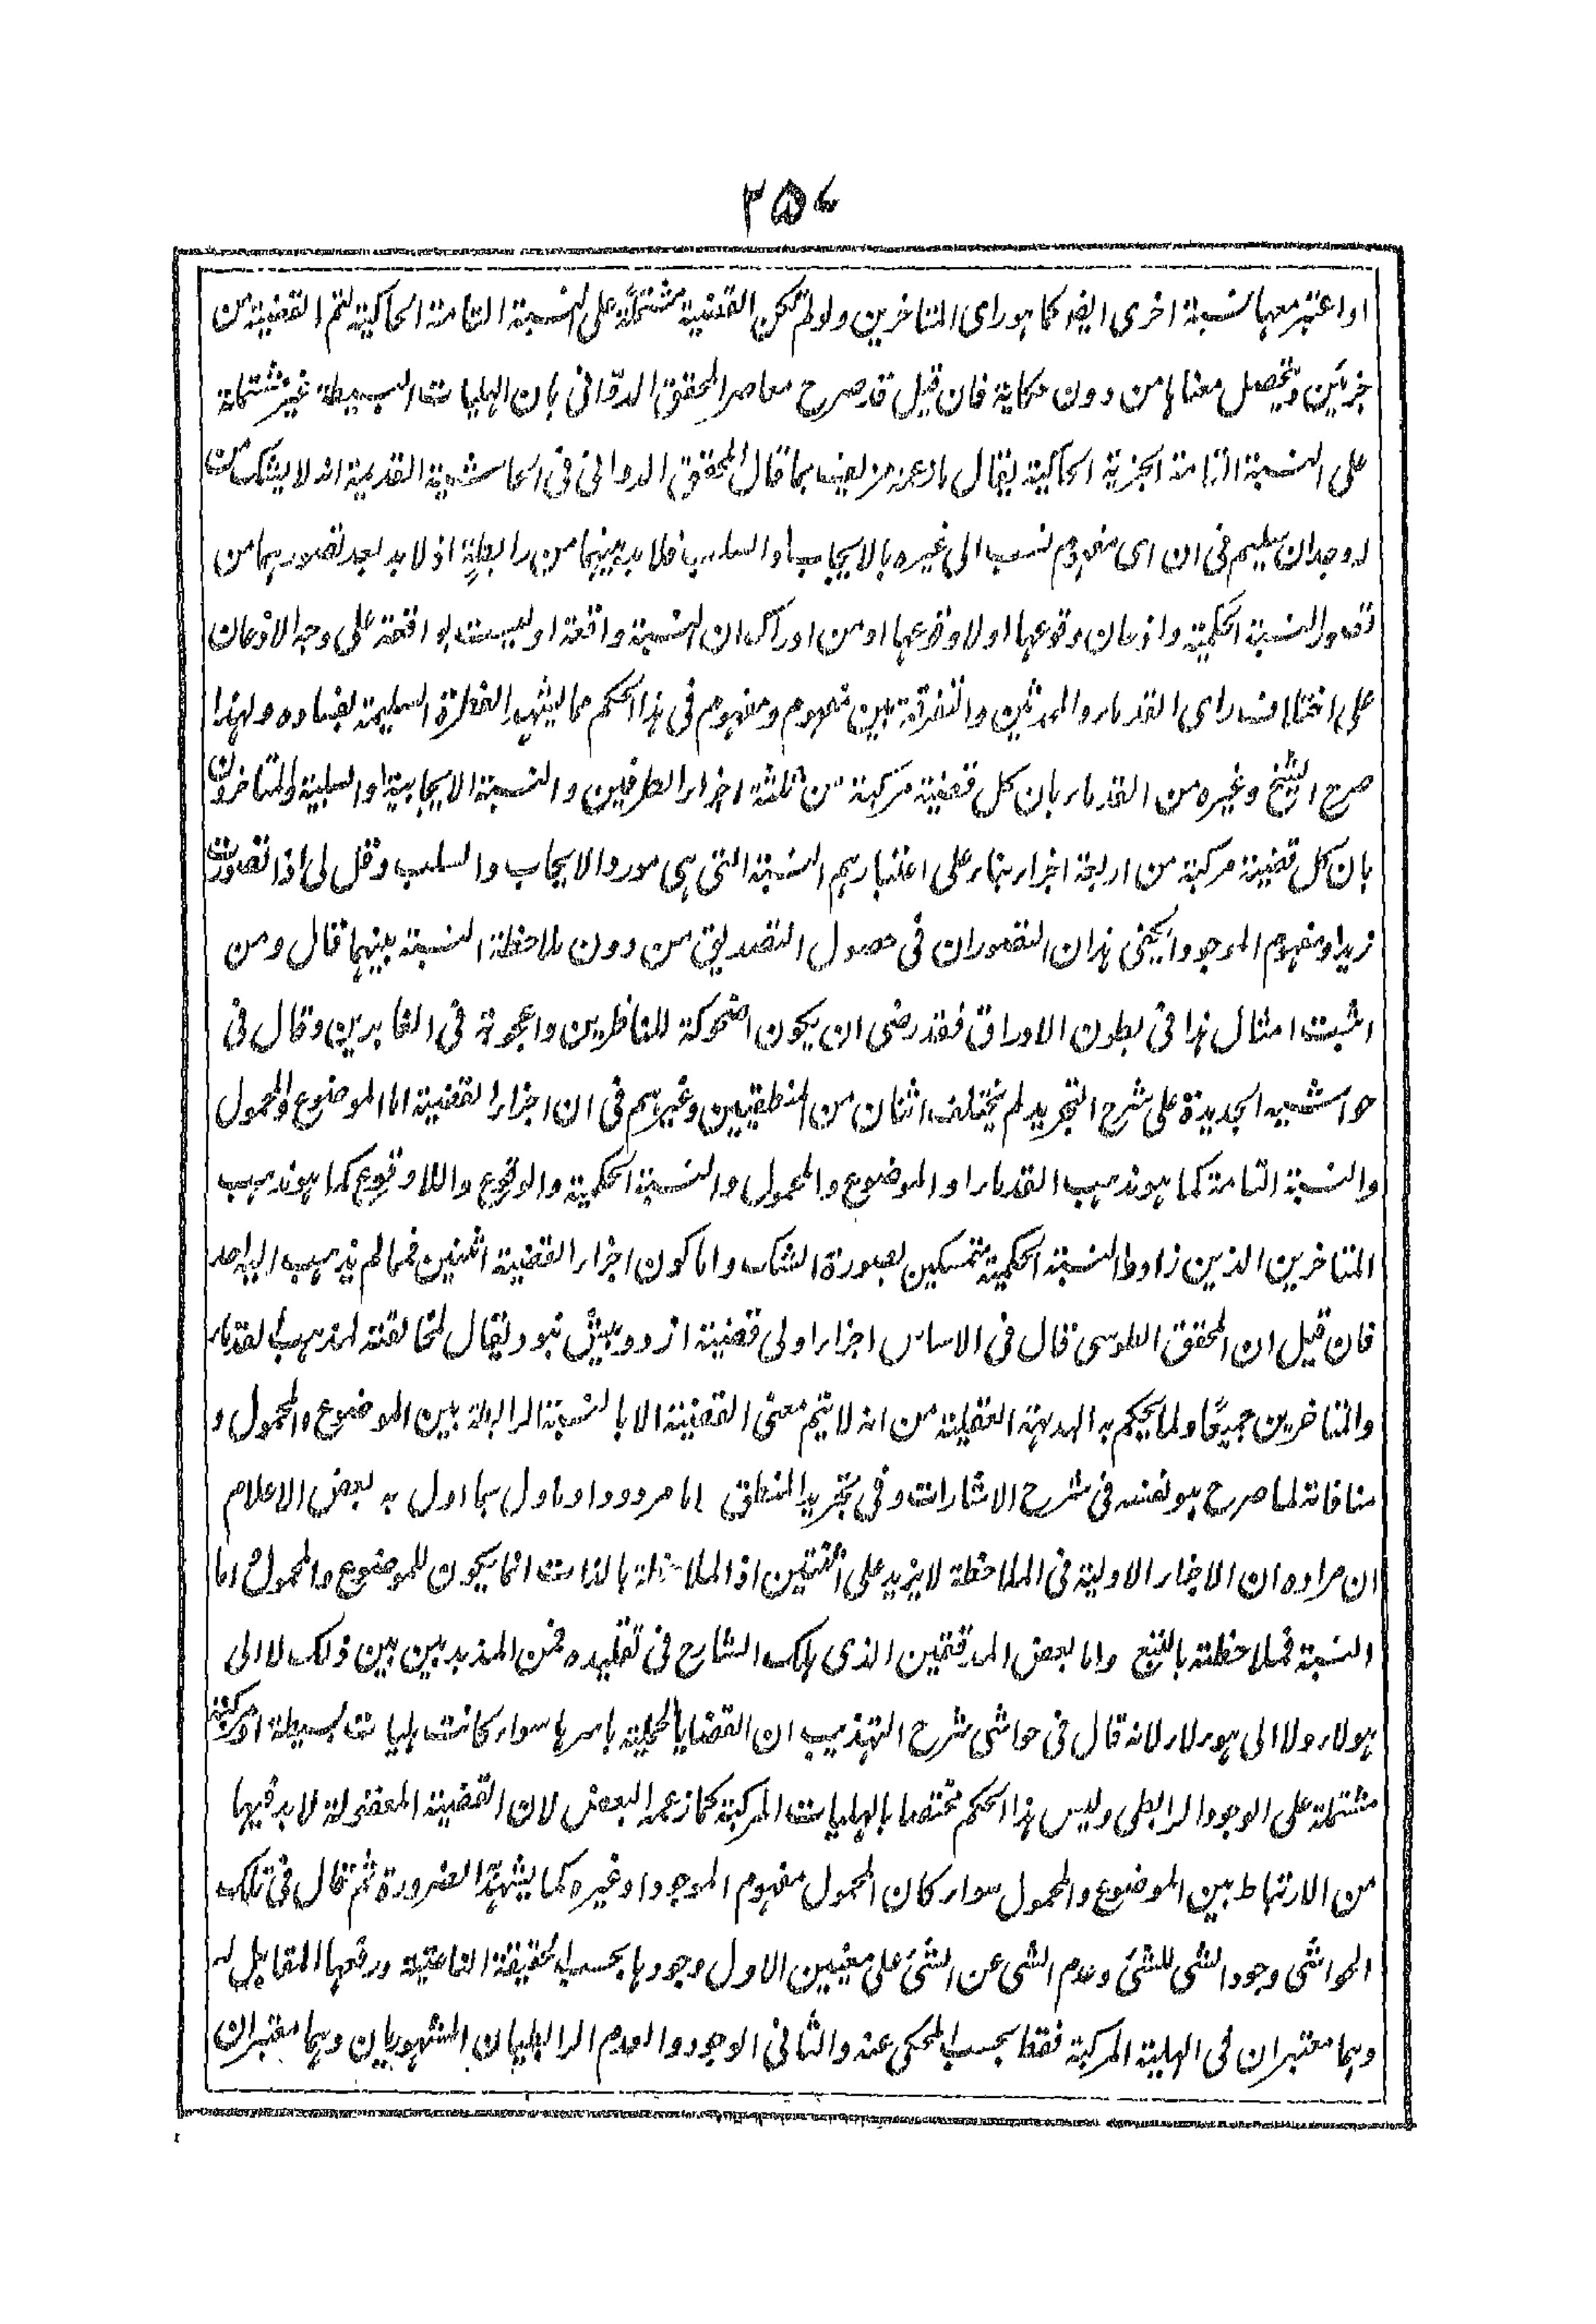 ٢٥٧
او اعتبر معها نسبة اخرى ايضا كما هو راى المتاخرين ولو لم تكن القضية مشتملة على النسبة التامة الحاكية لتم القضية من
جزئين وتحصل معناها من دون حكاية فان قيل قد صرح معاصر المحقق الدوانى بان الهليات البسيطة غير مشتملة
على النسبة التامة الجزية الحاكية يقال ما زعمه مزيف بما قال المحقق الدوانى فى الحاشية القديمة انه لا يشك من
له وجدان سليم فى ان اى مفهوم نسب الى غيره بالايجاب او السلب فلا بد بينهما من رابطة اذ لا بد بعد تصورهما من
تصور النسبة الحكمية واذعان وقوعها او لا وقوعها او من ادراك ان النسبة واقعة او ليست بواقعة على وجه الاذعان
على اختلاف راى القدماء والمحدثين والتفرقة بين مفهوم ومفهوم فى هذا الحكم مما يشهد الفطرة السليمة بفساده ولهذا
صرح الشيخ وغيره من القدماء بان كل قضية مركبة من ثلثة اجزاء الطرفين والنسبة الايجابية او السلبية والمتاخرون
بان كل قضية مركبة من اربعة اجزاء بناء على اعتبارهم النسبة التى هى مورد الايجاب والسلب وقل لى اذا تصورت
زيدا ومفهوم الموجود ايكفى هذان التصوران فى حصول التصديق من دون ملاحظة النسبة بينهما قال ومن
اثبت امثال هذا فى بطون الاوراق فقد رضى ان يكون اضحوكة للناظرين واعجوبة فى الغابرين وقال فى
حواشيه الجديدة على شرح التجريد لم يختلف اثنان من المنطقيين وغيرهم فى ان اجزاء القضية اما الموضوع والمحمول
والنسبة التامة كما هو مذهب القدماء او الموضوع والمحمول والنسبة الحكمية والوقوع واللا وقوع كما هو مذهب
المتاخرين الذين زادوا النسبة الحكمية متمسكين بصورة الشك واما كون اجزاء القضية اثنين فمما لم يذهب اليه احد
فان قيل ان المحقق الطوسى قال فى الاساس اجزاء اولى قضية از دو بيش نبود يقال لمخالفته لمذهب القدماء
والمتاخرين جميعا ولما يحكم به البديهة العقلية من انه لا يتم معنى القضية الا بالنسبة الرابطة بين الموضوع والمحمول و
منافاته لما صرح هو نفسه فى شرح الاشارات وفى تجريد المنطق اما مردود او ماول بما اول به بعض الاعلام
ان مراده ان الاجزاء الاولية فى الملاحظة لا يزيد على اثنين اذ الملاحظة بالذات انما يكون للموضوع والمحمول و اما
النسبة فملاحظته بالتبع واما بعض المدققين الذى هلك الشارح فى تقليده فمن المذبذبين بين ذلك لا الى
هولاء ولا الى هولاء لانه قال فى حواشى شرح التهذيب ان القضايا الحملية باسرها سواء كانت هليات بسيطة او مركبة
مشتملة على الوجود الرابطى وليس هذا الحكم مختصا بالهليات المركبة كما زعمه البعض لان القضية المعقولة لا بد فيها
من الارتباط بين الموضوع والمحمول سواء كان المحمول مفهوم الموجود او غيره كما يشهد به الضرورة ثم قال فى تلك
الحواشى وجود الشى للشئ وعدم الشى عن الشئ على معنيين الاول وجودها بحسب الحقيقة الناعتية ورفعها المقابل له
وهما معتبران فى الهلية المركبة فقط بحسب المحكى عنه والثانى الوجود والعدم الرابطيان المشهوريان وهما معتبران